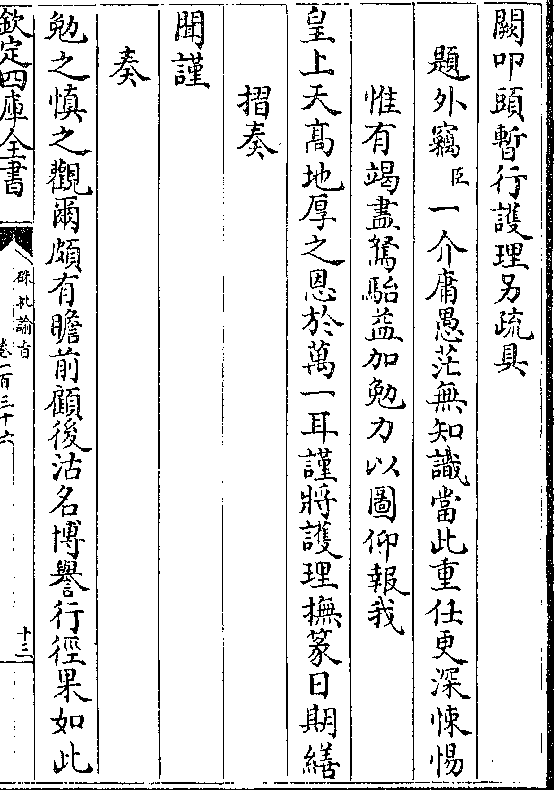 闕叩頭暫行護理另疏具
題外竊臣一介庸愚茫無知識當此重任更深悚惕
惟有竭盡駑駘益加勉力以圖仰報我
皇上天高地厚之恩於萬一耳謹將護理撫篆日期繕
摺奏
聞謹
奏
勉之慎之觀爾頗有瞻前顧後沽名博譽行徑果如此
欽定四庫全書
硃批諭旨
卷一百三十六
十三